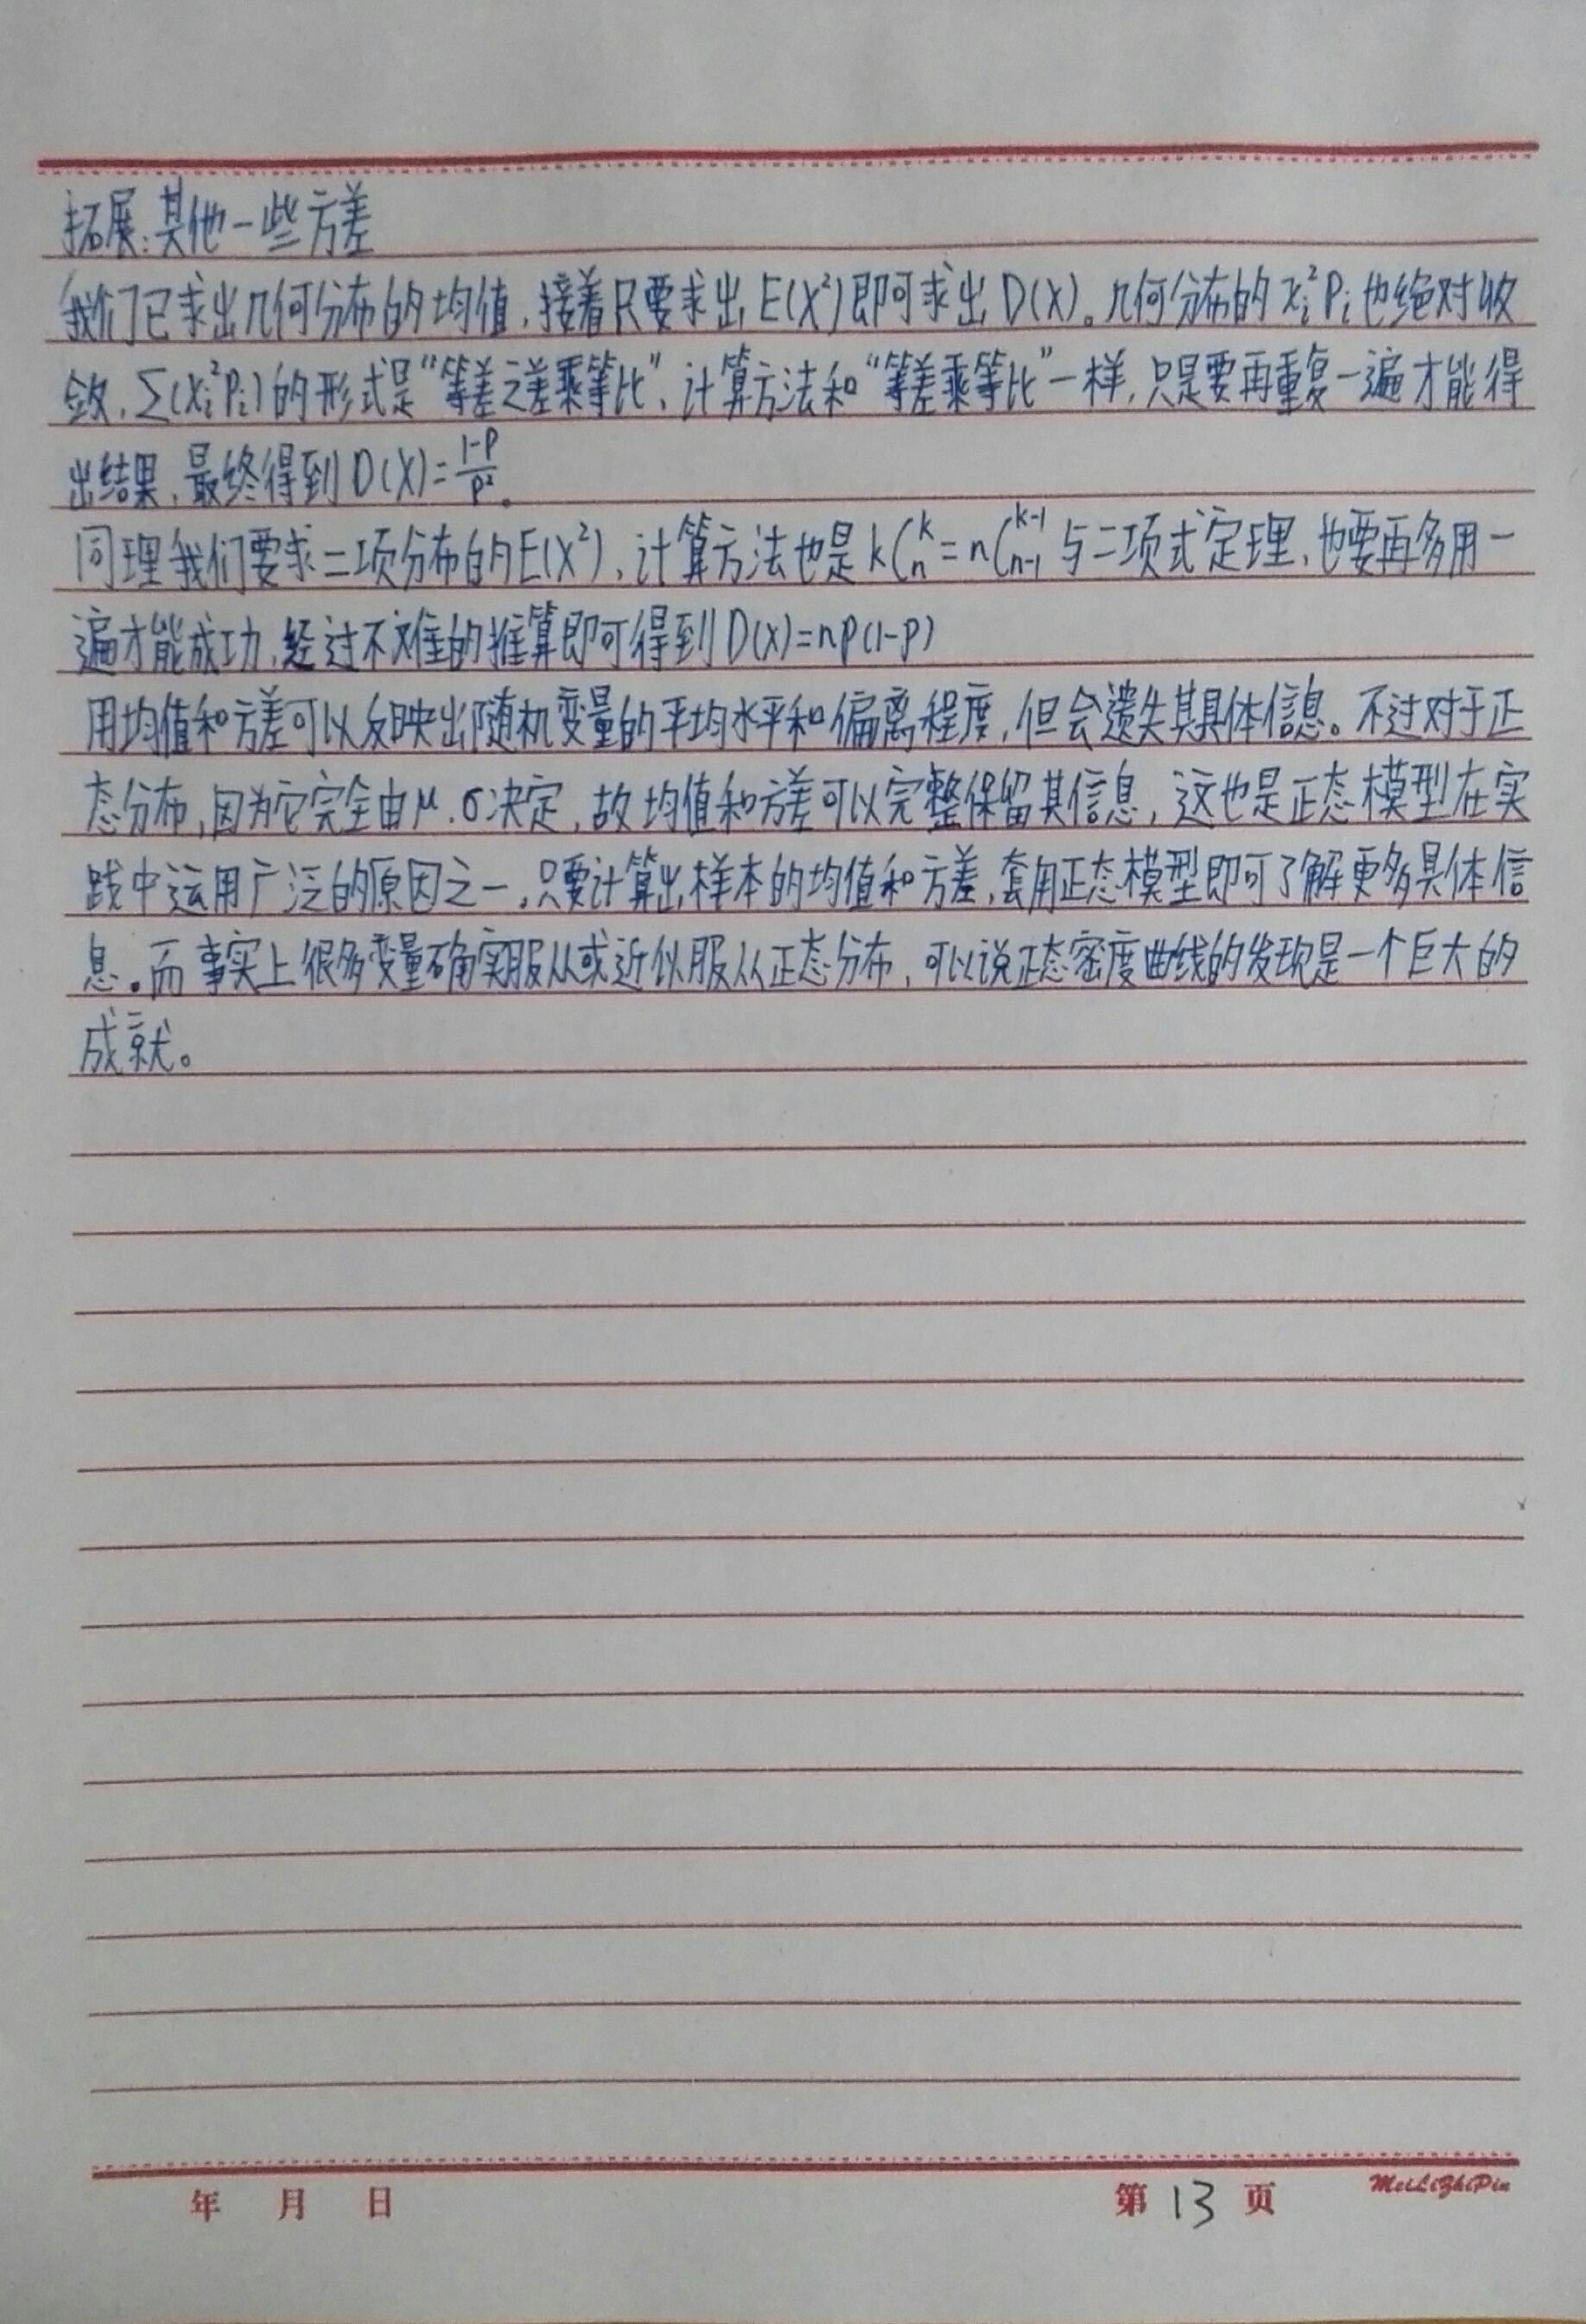 拓展:其他一些方差
我们已求出几何分布的均值,接着只要求出E(X²)即可求出D(X)。几何分布的xᵢ²Pᵢ也绝对收
敛,∑(xᵢ²Pᵢ)的形式是“等差之差乘等比”,计算方法和“等差乘等比”一样,只是要再重复一遍才能得
出结果,最终得到D(X)=\frac{1-P}{P²}。
同理我们要求二项分布的E(X²),计算方法也是kC_n^k=nC_{n-1}^{k-1}与二项式定理,也要再多用一
遍才能成功,经过不难的推算即可得到D(X)=np(1-p)
用均值和方差可以反映出随机变量的平均水平和偏离程度,但会遗失其具体信息。不过对于正
态分布,因为它完全由μ.σ决定,故均值和方差可以完整保留其信息,这也是正态模型在实
践中运用广泛的原因之一。只要计算出样本的均值和方差,套用正态模型即可了解更多具体信
息。而事实上很多变量确实服从或近似服从正态分布,可以说正态密度曲线的发现是一个巨大的
成就。
年 月 日 第 13 页 MeiLiZhiPin